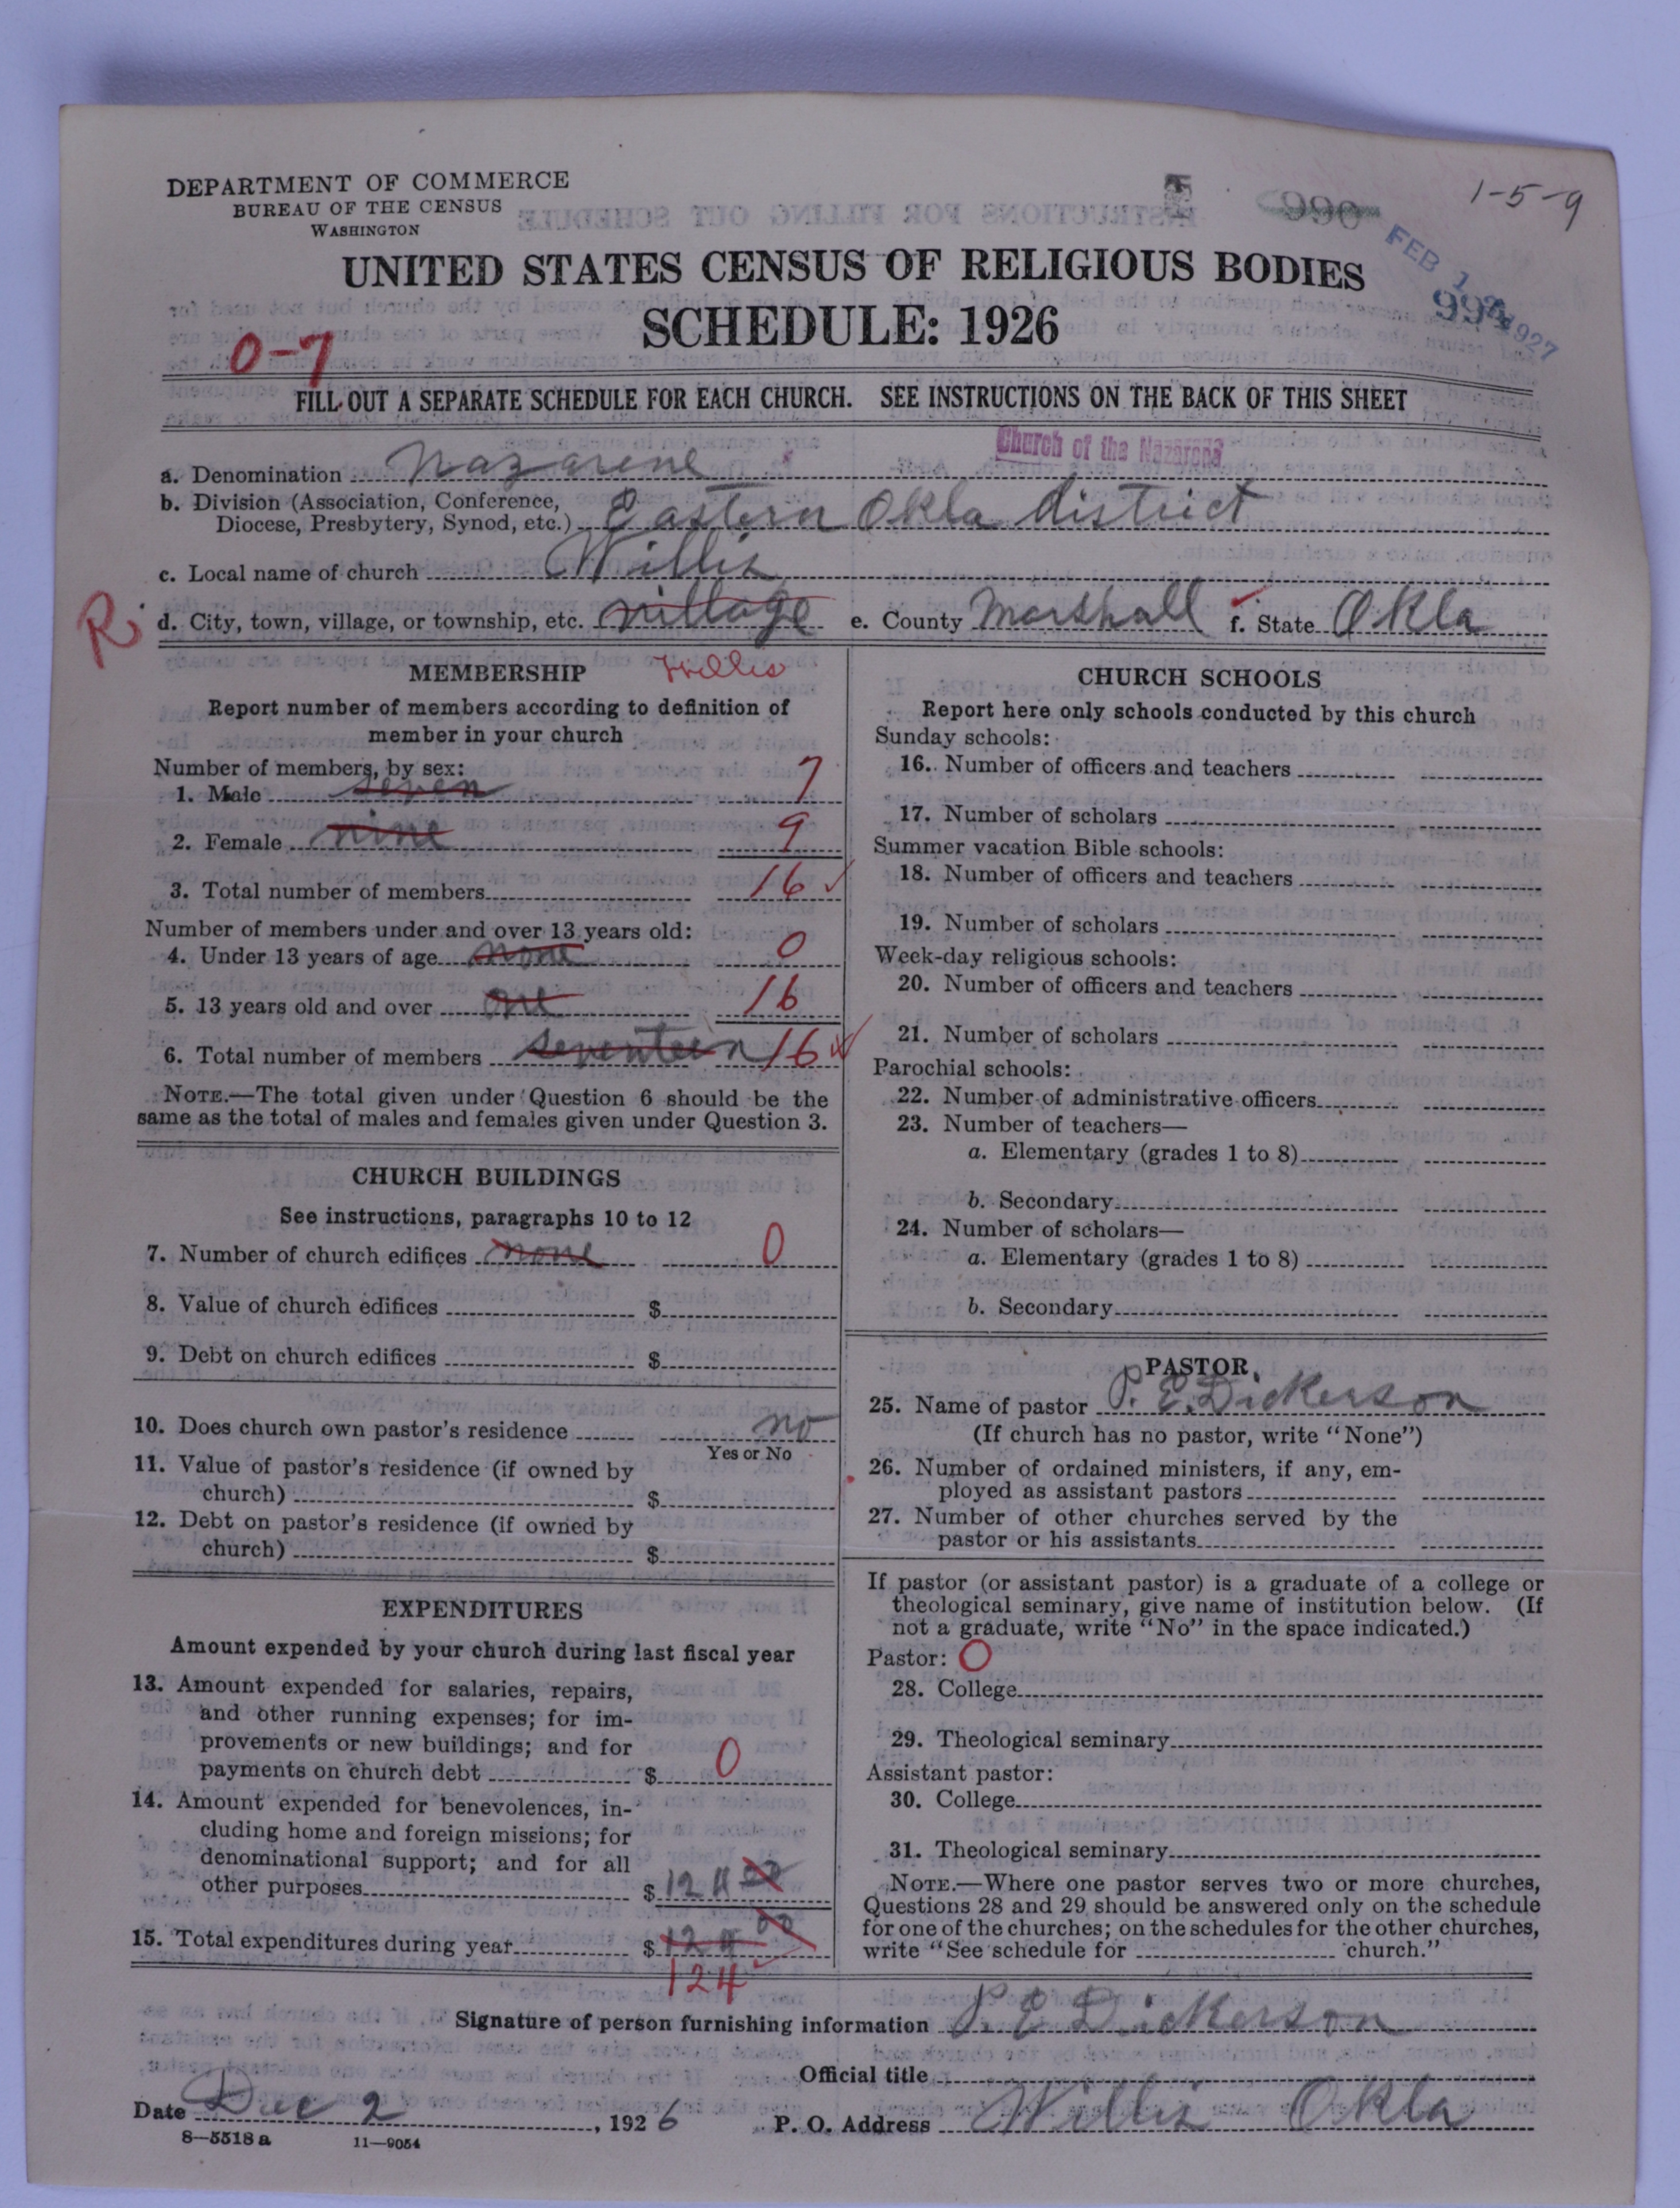 DEPARTMENT OF COMMERCE
BUREAU OF THE CENSUS
WASHINGTON
1-5-9
990
FEB 1 1927
UNITED STATES CENSUS OF RELIGIOUS BODIES
SCHEDULE: 1926
0-7
FILL OUT A SEPARATE SCHEDULE FOR EACH CHURCH. SEE INSTRUCTIONS ON THE BACK OF THIS SHEET
Church of the Nazarene
a. Denomination Nazarene
b. Division (Association, Conference,
Diocese, Presbytery, Synod, etc.) Eastern Okla district
c. Local name of church Willis
R. d. City, town, village, or township, etc. village e. County Marshall f. State Okla
MEMBERSHIP Willis
Report number of members according to definition of
member in your church
Number of members, by sex:
1. Male seven 7
2. Female nine 9
3. Total number of members 16
Number of members under and over 13 years old:
4. Under 13 years of age none 0
5. 13 years old and over one 16
6. Total number of members seventeen 16
NOTE.—The total given under Question 6 should be the
same as the total of males and females given under Question 3.
CHURCH BUILDINGS
See instructions, paragraphs 10 to 12
7. Number of church edifices none 0
8. Value of church edifices $
9. Debt on church edifices $
10. Does church own pastor's residence no
Yes or No
11. Value of pastor's residence (if owned by
church) $
12. Debt on pastor's residence (if owned by
church) $
EXPENDITURES
Amount expended by your church during last fiscal year
13. Amount expended for salaries, repairs,
and other running expenses; for im-
provements or new buildings; and for
payments on church debt $ 0
14. Amount expended for benevolences, in-
cluding home and foreign missions; for
denominational support; and for all
other purposes $ 124 00
15. Total expenditures during year $ 124 00
124
CHURCH SCHOOLS
Report here only schools conducted by this church
Sunday schools:
16. Number of officers and teachers
17. Number of scholars
Summer vacation Bible schools:
18. Number of officers and teachers
19. Number of scholars
Week-day religious schools:
20. Number of officers and teachers
21. Number of scholars
Parochial schools:
22. Number of administrative officers
23. Number of teachers—
a. Elementary (grades 1 to 8)
b. Secondary
24. Number of scholars—
a. Elementary (grades 1 to 8)
b. Secondary
PASTOR
25. Name of pastor P. E. Dickerson
(If church has no pastor, write "None")
26. Number of ordained ministers, if any, em-
ployed as assistant pastors
27. Number of other churches served by the
pastor or his assistants
If pastor (or assistant pastor) is a graduate of a college or
theological seminary, give name of institution below. (If
not a graduate, write "No" in the space indicated.)
Pastor: 0
28. College
29. Theological seminary
Assistant pastor:
30. College
31. Theological seminary
NOTE.—Where one pastor serves two or more churches,
Questions 28 and 29 should be answered only on the schedule
for one of the churches; on the schedules for the other churches,
write "See schedule for church."
Signature of person furnishing information P. E Dickerson
Official title
Date Dec 2, 1926 P. O. Address Willis Okla
8—5518 a 11—9054